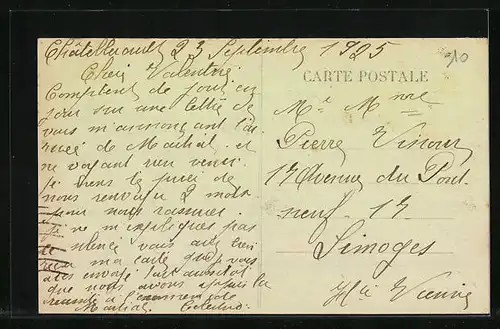 Châtellerault 23 Septembre 1925
Cher Valentin
Comptent de jour en
jour sur une lettre de
vous m'annonçant l'ar
rivée de Martial. et
ne voyant rien venir.
je viens te prier de
nous renvoyer 2 mots
pour nous rassurer.
je ne m'expliques pas
silence vous avez bien
ma carte que je vous
ai envoyé
que nous avons
à l'examen de
Martial.
CARTE POSTALE
Mr Mme
Pierre
17 Avenue du Pont
neuf. 17
Limoges
Hte Vienne